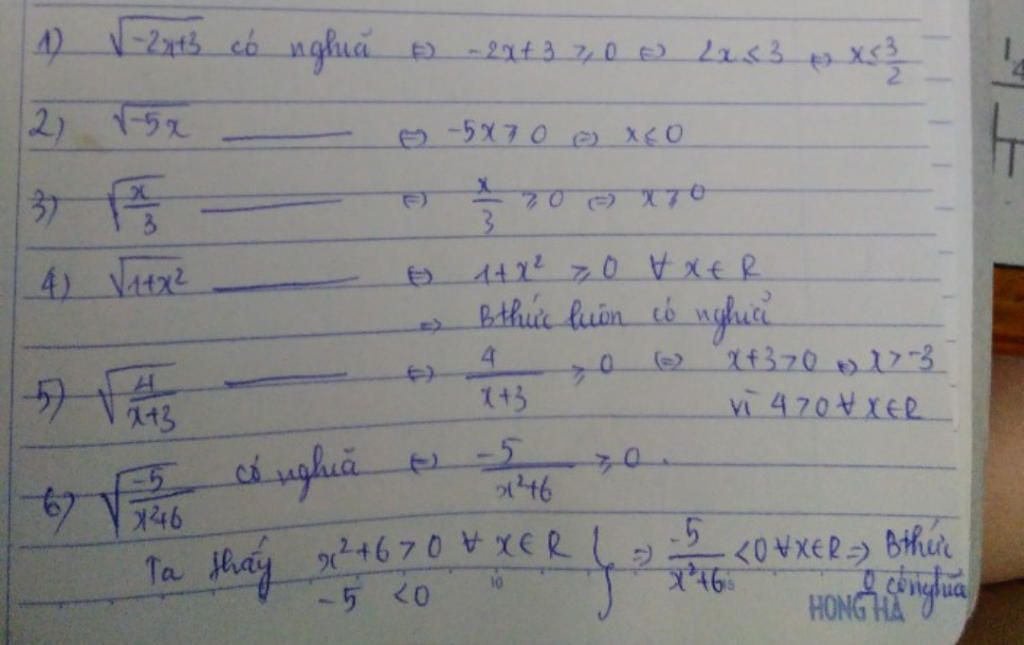 1) √-2x+3 có nghĩa ⇔ -2x+3 ≥ 0 ⇔ 2x ≤ 3 ⇔ x ≤ 3/2
2) √-5x ——— ⇔ -5x ≥ 0 ⇔ x ≤ 0
3) √x/3 ——— ⇔ x/3 ≥ 0 ⇔ x ≥ 0
4) √1+x² ——— ⇔ 1+x² ≥ 0 ∀ x ∈ R
⇒ Bthức luôn có nghĩa
5) √4/x+3 ——— ⇔ 4/x+3 ≥ 0 ⇔ x+3 > 0 ⇔ x > -3
vì 4 > 0 ∀ x ∈ R
6) √-5/x²+6 có nghĩa ⇔ -5/x²+6 ≥ 0.
Ta thấy x²+6 > 0 ∀ x ∈ R } ⇒ -5/x²+6 < 0 ∀ x ∈ R ⇒ Bthức
-5 < 0 có nghĩa
HONG HA